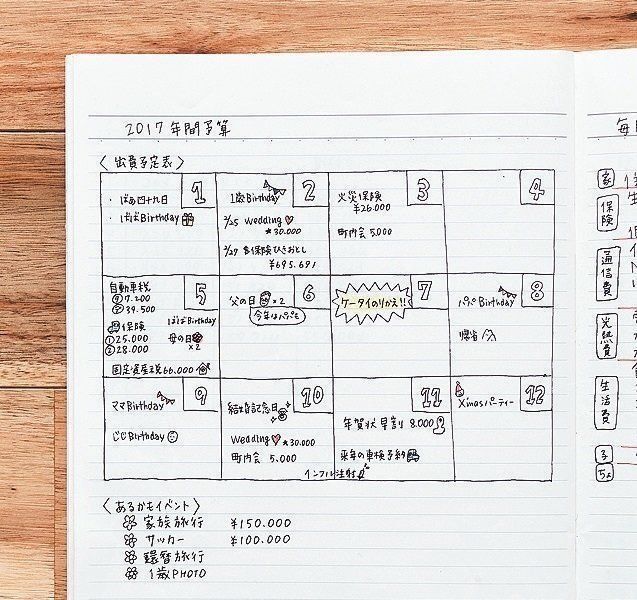 2017年間予算
〈出費予定表〉
1
・ばあ四十九日
・ばばBirthday
2
1歳Birthday
2/25 Wedding
30.000
2/27 保険ひきおとし
¥695.691
3
火災保険
¥26.000
町内会 5.000
4
5
自動車税
7.200
39.500
保険
①25.000
②28.000
ばばBirthday
母の日
×2
固定資産税66.000
6
父の日 ×2
今年はパパも
7
ケータイのりかえ!!
8
パパBirthday
帰省
9
ママBirthday
じじBirthday
10
結婚記念日
Wedding 30.000
町内会 5.000
11
年賀状早割 8.000
来年の車検予約
インフル注射
12
X'masパーティー
〈あるかもイベント〉
家族旅行 ¥150.000
サッカー ¥100.000
還暦旅行
1歳PHOTO
毎
家
保険
通信費
光熱費
生活費
子